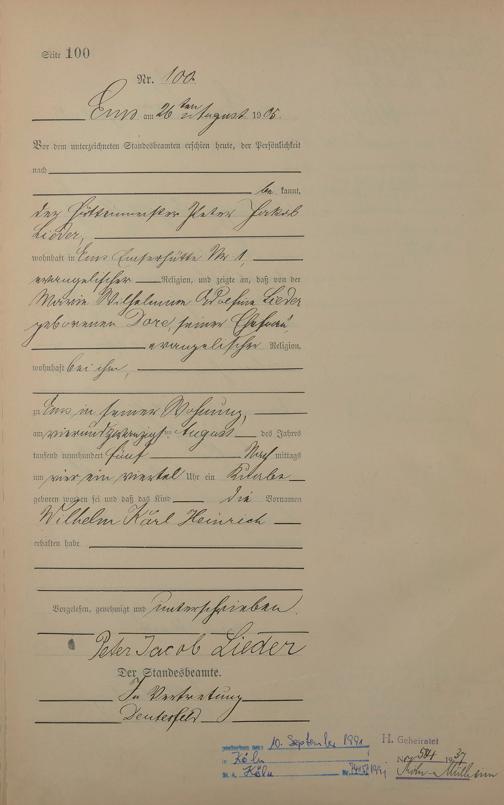 Seite 100
Nr. 100.
Ems am 26 ten August 1905.
Vor dem unterzeichneten Standesbeamten erschien heute, der Persönlichkeit
nach
be kannt,
der Hüttenmeister Peter Jakob
Lieder,
wohnhaft in Ems Emserhütte Nr 1,
evangelischer Religion, und zeigte an, daß von der
Marie Wilhelmine Lieder
geborenen Dore, seiner Ehefrau,
evangelischer Religion,
wohnhaft bei ihm,
zu Ems in seiner Wohnung,
am vierundzwanzigsten August des Jahres
tausend neunhundert fünf Nach mittags
um vier ein viertel Uhr ein Knabe
geboren worden sei und daß das Kind die Vornamen
Wilhelm Karl Heinrich
erhalten habe.
Vorgelesen, genehmigt und unterschrieben.
Peter Jacob Lieder
Der Standesbeamte.
In Vertretung
gestorben am: 10. September 1991
in Köln
St. A. Köln Nr. 1991
H. Geheiratet
Nr. 584 1937
Köln-Mülheim